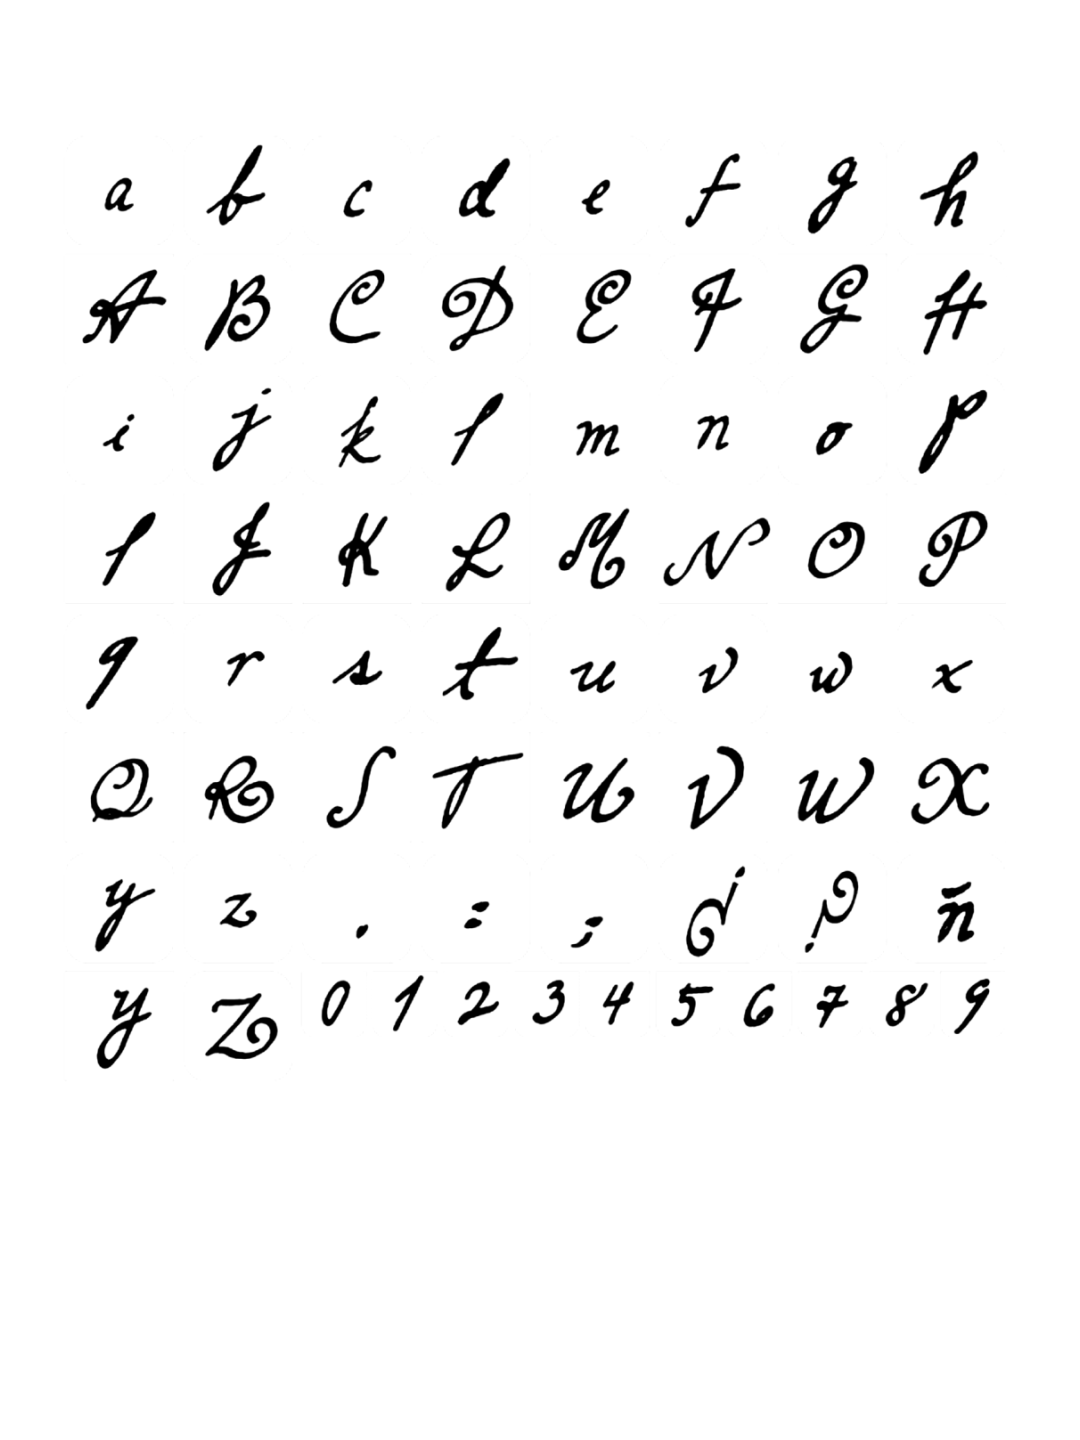 a b c d e f g h
A B C D E F G H
i j k l m n o p
I J K L M N O P
q r s t u v w x
Q R S T U V W X
y z . : ; ¿ ? ñ
Y Z 0 1 2 3 4 5 6 7 8 9